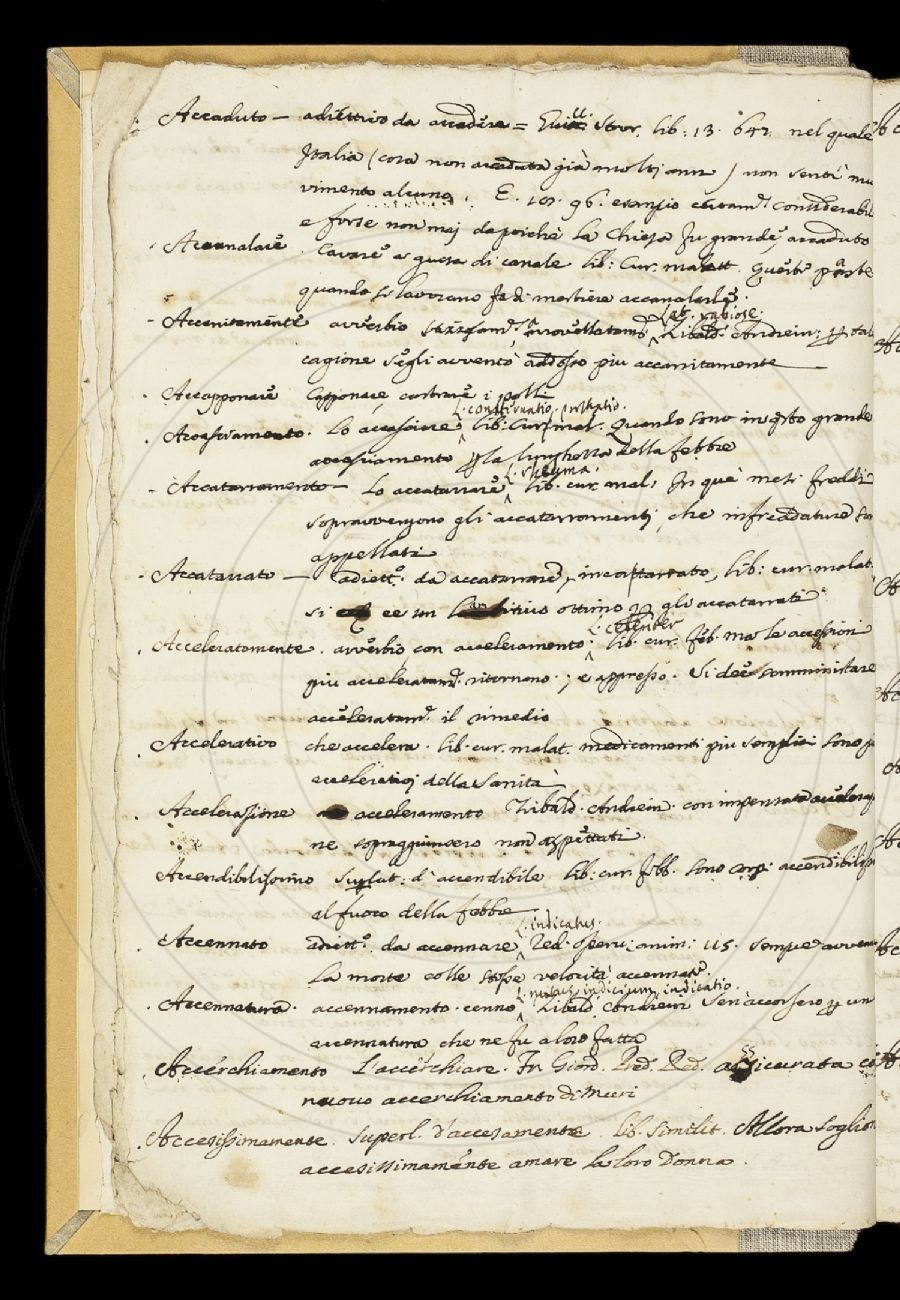 Accaduto — adiettivo da accadére = Guicc. Stor. lib: 13. 642. nel quale
Italia (cosa non accaduta già molti anni) non sentì mo
vimento alcuno. E. 101. 96. esempio certam.te considerabile
e forse non mai dapoichè la Chiesa fu grande, accaduto
Accanalare. Cavare a guisa di canale lib: Cur. malatt. Queste paste
quando si lavorano fa di mestiere accanalarle.
L. rabiose.
- Accanitaménte avverbio Zibald. Andrein: p tal
cagione segli avventò addosso piu accanitamente
. Accapponare Capponare, castrare i polli
L. constipatio
. Accasciamento. Lo accasciare lib: Cur: mal: Quando sono in questo grande
accasciamento p la lunghezza della febbre
L. rheuma.
- Accatarramento — Lo accatarrare lib. cur. mal: In què mesi freddi
sopravvengono gli accatarramenti, che infreddature son
appellati
. Accatarrato — adiett.o da accatarrare, lib: cur. malat.
si ee un ottimo p gli accatarrati
L. celeriter
. Acceleratamente. avvérbio con acceleramento. lib. cur. feb. ma le accessioni
piu acceleratam.te ritornano; e appresso. Si deé somministrare
acceleratam.te il rimedio
. Accelerativo che accelera. lib. cur. malat. medicamenti piu semplici sono
accelerativi della Sanità
. Accelerazione acceleramento Zibald. Andrein. con impensata accelerazio
ne sopraggiunsero non aspettati.
Accendibilissimo Suplat: d'accendibile lib: cur. febb. Sono corpi accendibilissimi
al fuoco della febbre
L. indicatus.
. Accennato adiett.o da accennare Red. Osserv: anim: 115. sempre avvenne
la morte colle stesse velocità accennate.
L. nutus, indicium, indicatio.
. Accennatura. accennamento. cenno Zibald. Andrein Sen' accorsero p un
accennatura che ne fu a loro fatta
. Accérchiamento L'accérchiare. Fr. Giord. Pred. Red. assicurata
nuovo accerchiamento di Muri
. Accesissimamente. Superl. d'accesamente. lib. Similit. Allora soglion
accesissimaménte amare la loro Donna.